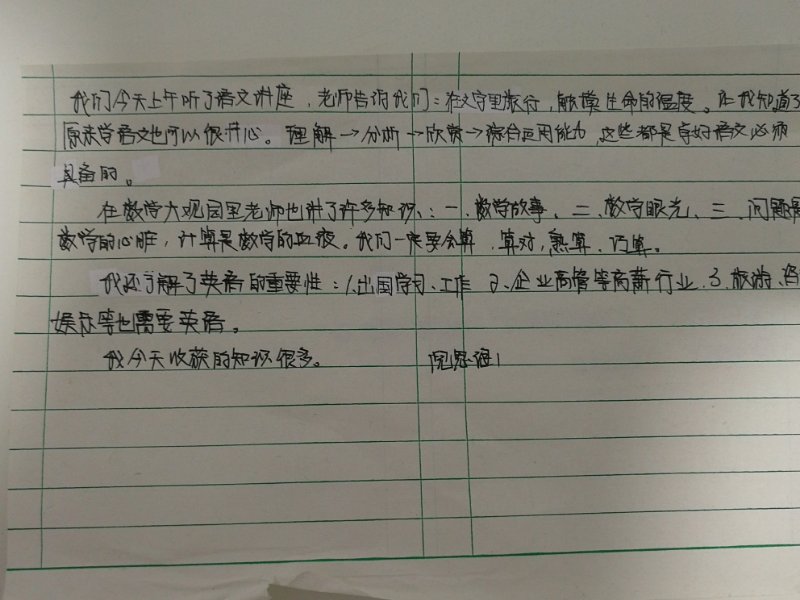 我们今天上午听了语文讲座，老师告诉我们：在文字里旅行，触摸生命的温度。让我知道了
原来学语文也可以很开心。理解→分析→欣赏→综合运用能力，这些都是学好语文必须
具备的。
在数学大观园里老师也讲了许多知识：一、数学故事、二、数学眼光、三、问题是
数学的心脏，计算是数学的血液。我们一定要会算、算对，熟算、巧算。
我还了解了英语的重要性：1.出国学习、工作 2、企业高管等高薪行业、3、旅游、
娱乐等也需要英语。
我今天收获的知识很多。